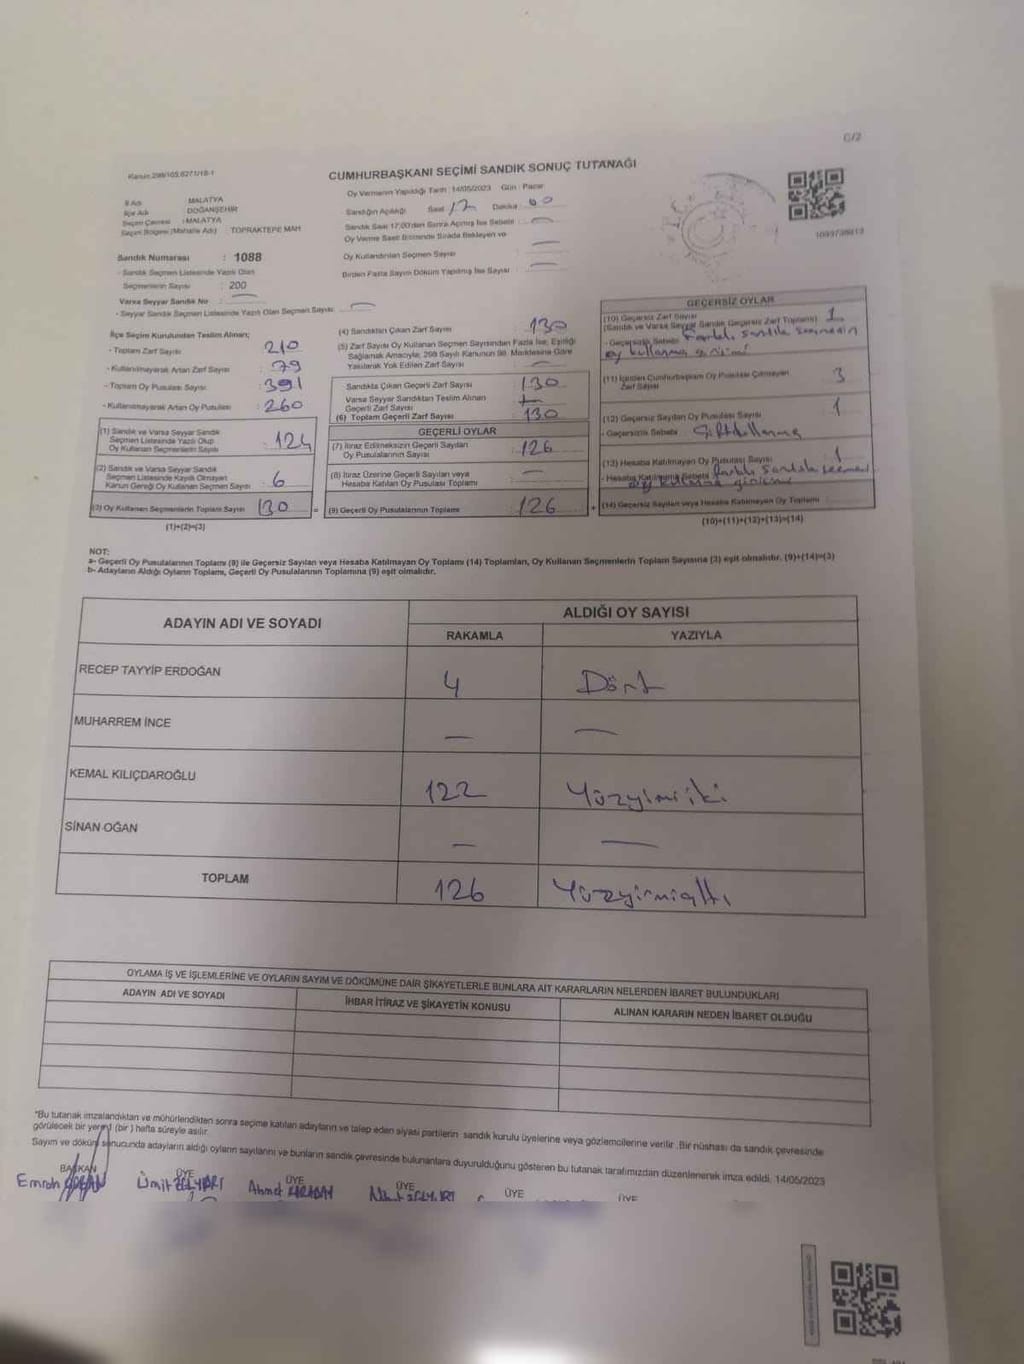 C/2
CUMHURBAŞKANI SEÇİMİ SANDIK SONUÇ TUTANAĞI
Oy Vermenin Yapıldığı Tarih : 14/05/2023 Gün : Pazar
İl Adı MALATYA
İlçe Adı DOĞANŞEHİR
Seçim Çevresi : MALATYA
Seçim Bölgesi (Mahalle Adı) : TOPRAKTEPE MAH
Sandığın Açıldığı Saat 17 Dakika 00
Sandık Saat 17:00'den Sonra Açılmış İse Sebebi :
Oy Verme Saati Bitiminde Sırada Bekleyen ve
Oy Kullandırılan Seçmen Sayısı
Birden Fazla Sayım Döküm Yapılmış İse Sayısı
Sandık Numarası : 1088
- Sandık Seçmen Listesinde Yazılı Olan
Seçmenlerin Sayısı : 200
Varsa Seyyar Sandık No :
- Seyyar Sandık Seçmen Listesinde Yazılı Olan Seçmen Sayısı:
İlçe Seçim Kurulundan Teslim Alınan;
- Toplam Zarf Sayısı : 210
- Kullanılmayarak Artan Zarf Sayısı : 79
- Toplam Oy Pusulası Sayısı : 391
- Kullanılmayarak Artan Oy Pusulası : 260
(1) Sandık ve Varsa Seyyar Sandık
Seçmen Listesinde Yazılı Olup
Oy Kullanan Seçmen Sayısı : 124
(2) Sandık ve Varsa Seyyar Sandık
Seçmen Listesinde Kayıtlı Olmayan
Kanun Gereği Oy Kullanan Seçmen Sayısı : 6
(3) Oy Kullanan Seçmenlerin Toplam Sayısı 130
(1)+(2)=(3)
(4) Sandıktan Çıkan Zarf Sayısı : 130
(5) Zarf Sayısı Oy Kullanan Seçmen Sayısından Fazla İse, Eşitliği
Sağlamak Amacıyla, 298 Sayılı Kanunun 98. Maddesine Göre
Yakılarak Yok Edilen Zarf Sayısı
Sandıkta Çıkan Geçerli Zarf Sayısı : 130
Varsa Seyyar Sandıktan Teslim Alınan
Geçerli Zarf Sayısı
(6) Toplam Geçerli Zarf Sayısı : 130
GEÇERLİ OYLAR
(7) İtiraz Edilmeksizin Geçerli Sayılan
Oy Pusulalarının Sayısı : 126
(8) İtiraz Üzerine Geçerli Sayılan veya
Hesaba Katılan Oy Pusulası Toplamı
= (9) Geçerli Oy Pusulalarının Toplamı : 126 +
GEÇERSİZ OYLAR
(10) Geçersiz Zarf Sayısı
(Sandık ve Varsa Seyyar Sandık Geçersiz Zarf Toplamı) : 1
- Geçersizlik Sebebi Farklı sandık seçmenin
oy kullanma girişimi
(11) İçinden Cumhurbaşkanı Oy Pusulası Çıkmayan
Zarf Sayısı 3
(12) Geçersiz Sayılan Oy Pusulası Sayısı 1
- Geçersizlik Sebebi Çift kullanma
(13) Hesaba Katılmayan Oy Pusulası Sayısı 1
- Hesaba Katılmama Sebebi farklı sandık
(14) Geçersiz Sayılan veya Hesaba Katılmayan Oy Toplamı
(10)+(11)+(12)+(13)=(14)
NOT:
a- Geçerli Oy Pusulalarının Toplamı (9) ile Geçersiz Sayılan veya Hesaba Katılmayan Oy Toplamı (14) Toplamları, Oy Kullanan Seçmenlerin Toplam Sayısına (3) eşit olmalıdır. (9)+(14)=(3)
b- Adayların Aldığı Oyların Toplamı, Geçerli Oy Pusulalarının Toplamına (9) eşit olmalıdır.
ADAYIN ADI VE SOYADI ALDIĞI OY SAYISI
RAKAMLA YAZIYLA
RECEP TAYYİP ERDOĞAN 4 Dört
MUHARREM İNCE — —
KEMAL KILIÇDAROĞLU 122 Yüzyirmiiki
SİNAN OĞAN — —
TOPLAM 126 Yüzyirmialtı
OYLAMA İŞ VE İŞLEMLERİNE VE OYLARIN SAYIM VE DÖKÜMÜNE DAİR ŞİKAYETLERLE BUNLARA AİT KARARLARIN NELERDEN İBARET BULUNDUKLARI
ADAYIN ADI VE SOYADI İHBAR İTİRAZ VE ŞİKAYETİN KONUSU ALINAN KARARIN NEDEN İBARET OLDUĞU
*Bu tutanak imzalandıktan ve mühürlendikten sonra seçime katılan adayların ve talep eden siyasi partilerin sandık kurulu üyelerine veya gözlemcilerine verilir. Bir nüshası da sandık çevresinde
görülecek bir yerde (bir) hafta süreyle asılır.
Sayım ve döküm sonucunda adayların aldığı oyların sayılarını ve bunların sandık çevresinde bulunanlara duyurulduğunu gösteren bu tutanak tarafımızdan düzenlenerek imza edildi. 14/05/2023
BAŞKAN ÜYE ÜYE ÜYE ÜYE ÜYE
Emrah Ümit Ahmet